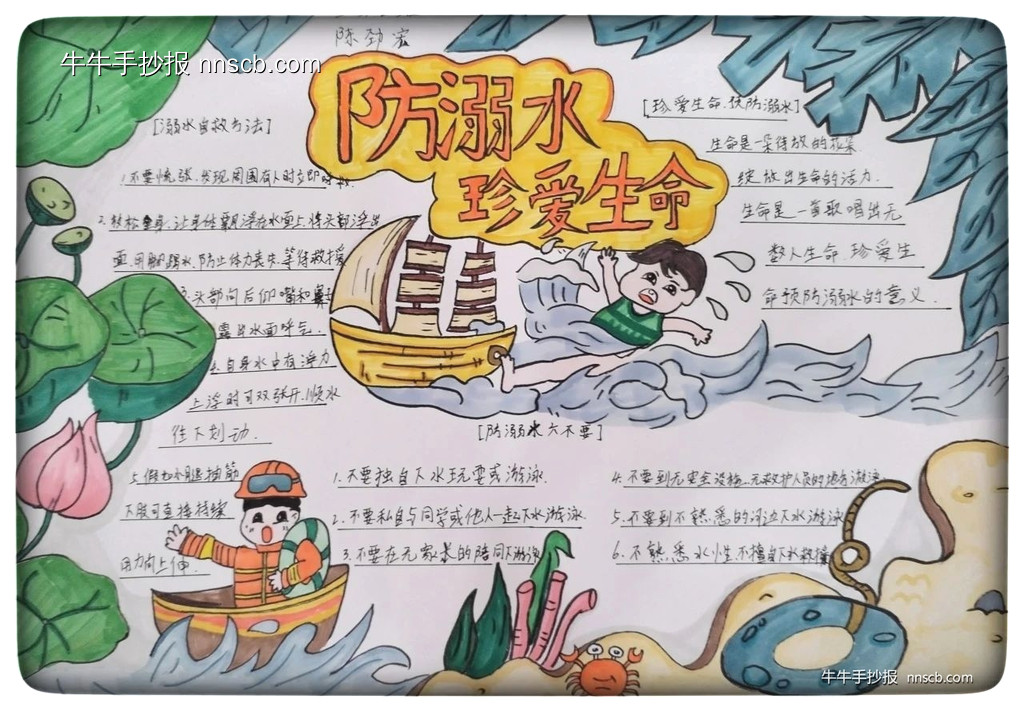 牛牛手抄报 nnscb.com
陈劲宏
防溺水
珍爱生命
[溺水自救方法]
1.不要慌张,发现周围有人时立即呼救.
2.放松全身,让身体飘浮在水面上,将头部浮出
面,用脚踢水,防止体力丧失,等待救援
3.头部向后仰嘴和鼻子
露出水面呼气.
4.自身水中有浮力
上浮时可双张开,顺水
往下划动.
5.假如小腿抽筋
下肢可直接持续
用力向上伸.
[珍爱生命.预防溺水]
生命是一朵待放的花朵.
绽放出生命的活力.
生命是一首歌唱出无
数人生命.珍爱生
命预防溺水的意义.
[防溺水六不要]
1.不要独自下水玩耍或游泳.
2.不要私自与同学或他人一起下水游泳.
3.不要在无家长的陪同下游泳
4.不要到无安全设施、无救护人员的地方游泳
5.不要到不熟悉的河边下水游泳
6.不熟悉水性.不擅自下水救援
牛牛手抄报 nnscb.com